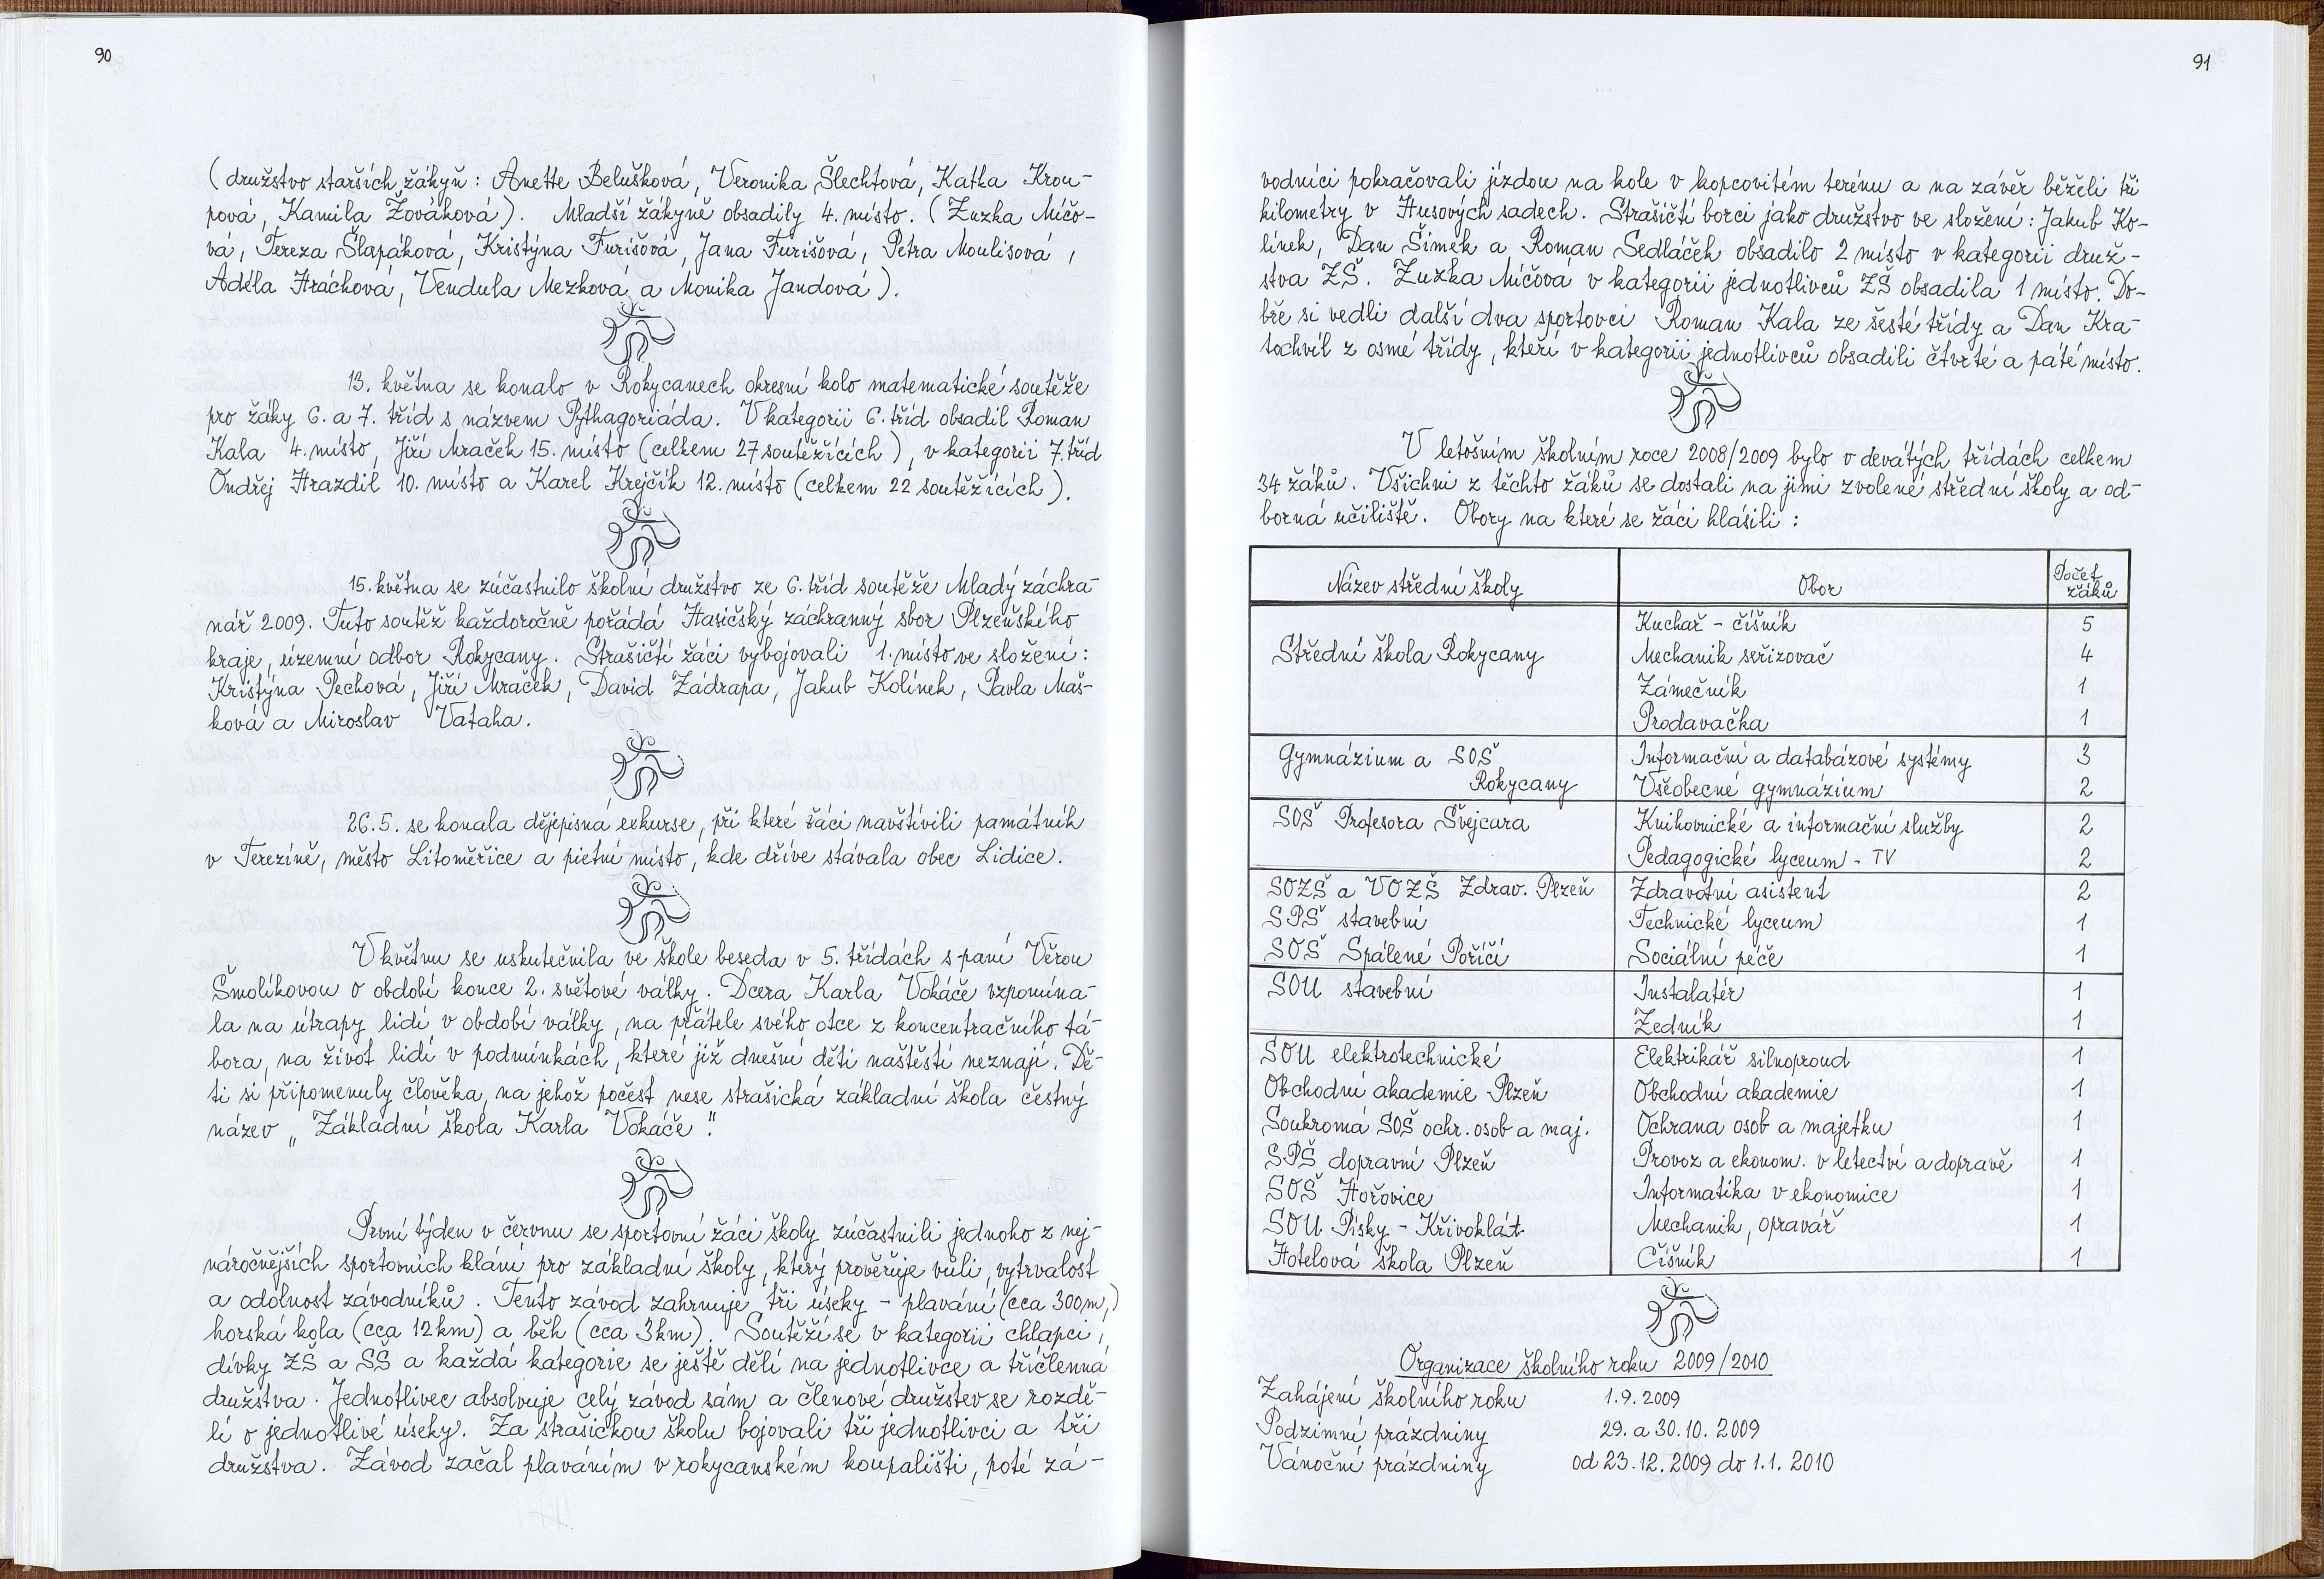 90
(družstvo starších žákyň: Anette Belušková, Veronika Šlechtová, Katka Krou-
pová, Kamila Žováková). Mladší žákyně obsadily 4. místo. (Zuzka Míčo-
vá, Tereza Šlapáková, Kristýna Furišová, Jana Furišová, Petra Moulisová,
Adéla Hráchová, Vendula Mezková a Monika Jandová).
13. května se konalo v Rokycanech okresní kolo matematické soutěže
pro žáky 6. a 7. tříd s názvem Pythagoriáda. V kategorii 6. tříd obsadil Roman
Kala 4. místo, Jiří Mraček 15. místo (celkem 27 soutěžících), v kategorii 7. tříd
Ondřej Hrazdil 10. místo a Karel Krejčík 12. místo (celkem 22 soutěžících).
15. května se zúčastnilo školní družstvo ze 6. tříd soutěže Mladý záchra-
nář 2009. Tuto soutěž každoročně pořádá Hasičský záchranný sbor Plzeňského
kraje, územní odbor Rokycany. Strašičtí žáci vybojovali 1. místo ve složení:
Kristýna Pechová, Jiří Mraček, David Zádrapa, Jakub Kolínek, Pavla Maš-
ková a Miroslav Vataha.
26.5. se konala dějepisná exkurse, při které žáci navštívili památník
v Terezíně, město Litoměřice a pietní místo, kde dříve stávala obec Lidice.
V květnu se uskutečnila ve škole beseda v 5. třídách s paní Věrou
Šmolíkovou o období konce 2. světové války. Dcera Karla Vokáče vzpomína-
la na útrapy lidí v období války, na přátele svého otce z koncentračního tá-
bora, na život lidí v podmínkách, které již dnešní děti naštěstí neznají. Dě-
ti si připomenuly člověka, na jehož počest nese strašická základní škola čestný
název „Základní škola Karla Vokáče".
První týden v červnu se sportovní žáci školy zúčastnili jednoho z nej-
náročnějších sportovních klání pro základní školy, který prověřuje vůli, vytrvalost
a odolnost závodníků. Tento závod zahrnuje tři úseky - plavání (cca 300m,)
horská kola (cca 12km) a běh (cca 3km). Soutěží se v kategorii chlapci,
dívky ZŠ a SŠ a každá kategorie se ještě dělí na jednotlivce a tříčlenná
družstva. Jednotlivec absolvuje celý závod sám a členové družstev se rozdě-
lí o jednotlivé úseky. Za strašickou školu bojovali tři jednotlivci a tři
družstva. Závod začal plaváním v rokycanském koupališti, poté zá-
91
vodníci pokračovali jízdou na kole v kopcovitém terénu a na závěr běželi tři
kilometry v Husových sadech. Strašičtí borci jako družstvo ve složení: Jakub Ko-
línek, Dan Šimek a Roman Sedláček obsadilo 2 místo v kategorii druž-
stva ZŠ. Zuzka Míčová v kategorii jednotlivců ZŠ obsadila 1 místo. Do-
bře si vedli další dva sportovci Roman Kala ze šesté třídy a Dan Kra-
tochvíl z osmé třídy, kteří v kategorii jednotlivců obsadili čtvrté a páté místo.
V letošním školním roce 2008/2009 bylo v devátých třídách celkem
34 žáků. Všichni z těchto žáků se dostali na jimi zvolené střední školy a od-
borná učiliště. Obory na které se žáci hlásili:
Název střední školy Obor Počet žáků
Kuchař - číšník 5
Střední škola Rokycany Mechanik seřizovač 4
Zámečník 1
Prodavačka 1
Gymnázium a SOŠ Informační a databázové systémy 3
Rokycany Všeobecné gymnázium 2
SOŠ Profesora Švejcara Knihovnické a informační služby 2
Pedagogické lyceum - TV 2
SOZŠ a VOZŠ Zdrav. Plzeň Zdravotní asistent 2
SPŠ stavební Technické lyceum 1
SOŠ Spálené Poříčí Sociální péče 1
SOU stavební Instalatér 1
Zedník 1
SOU elektrotechnické Elektrikář silnoproud 1
Obchodní akademie Plzeň Obchodní akademie 1
Soukromá SOŠ ochr. osob a maj. Ochrana osob a majetku 1
SPŠ dopravní Plzeň Provoz a ekonom. v letectví a dopravě 1
SOŠ Hořovice Informatika v ekonomice 1
SOU Písky - Křivoklát Mechanik, opravář 1
Hotelová škola Plzeň Číšník 1
Organizace školního roku 2009/2010
Zahájení školního roku 1.9.2009
Podzimní prázdniny 29. a 30.10. 2009
Vánoční prázdniny od 23.12. 2009 do 1.1. 2010